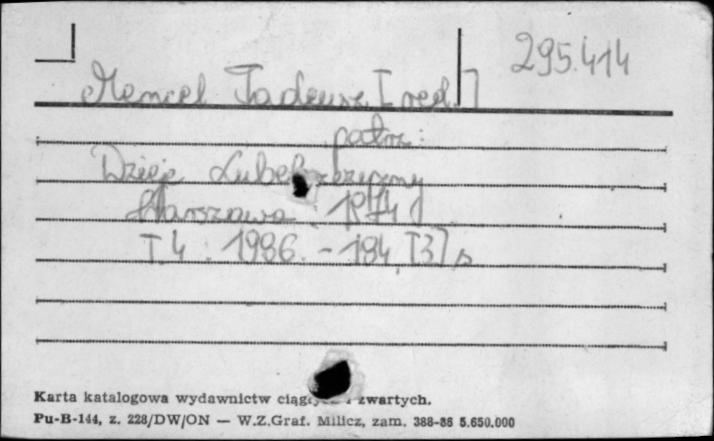 295.414
Mencel Tadeusz [red.]
patrz:
Dzieje Lubelszczyzny
Warszawa 1974
T. 4 : 1986. - 184, [3] s
Karta katalogowa wydawnictw ciągłych i zwartych.
Pu-B-144, z. 228/DW/ON — W.Z.Graf. Milicz, zam. 388-88 5.650.000